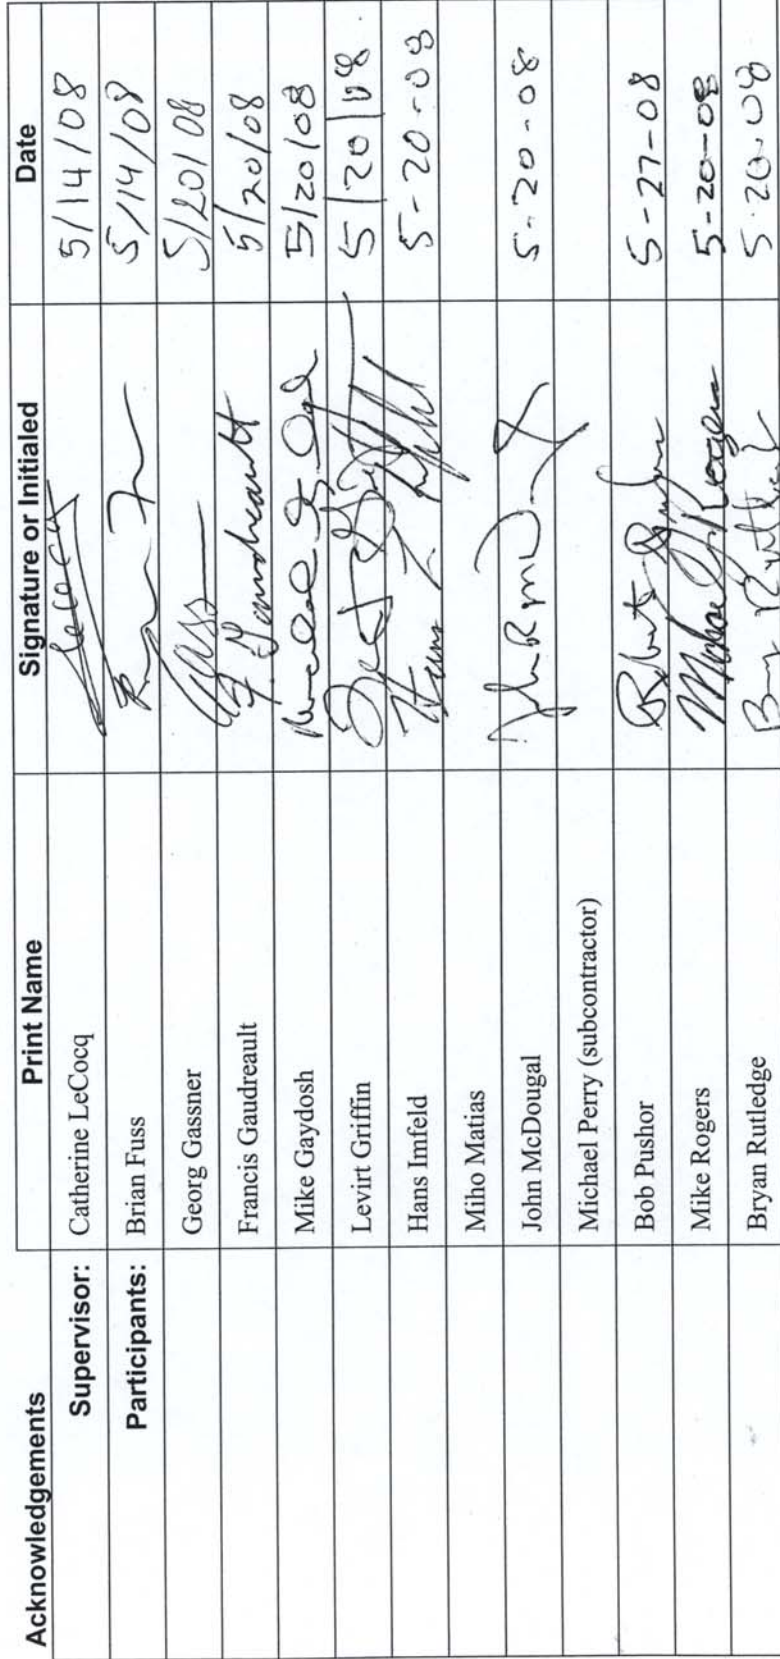 Acknowledgements Print Name Signature or Initialed Date
Supervisor: Catherine LeCocq 5/14/08
Participants: Brian Fuss 5/14/08
Georg Gassner 5/20/08
Francis Gaudreault F. Gaudreault 5/20/08
Mike Gaydosh 5/20/08
Levirt Griffin 5/20/08
Hans Imfeld 5-20-08
Miho Matias
John McDougal 5-20-08
Michael Perry (subcontractor)
Bob Pushor 5-27-08
Mike Rogers 5-20-08
Bryan Rutledge 5-20-08